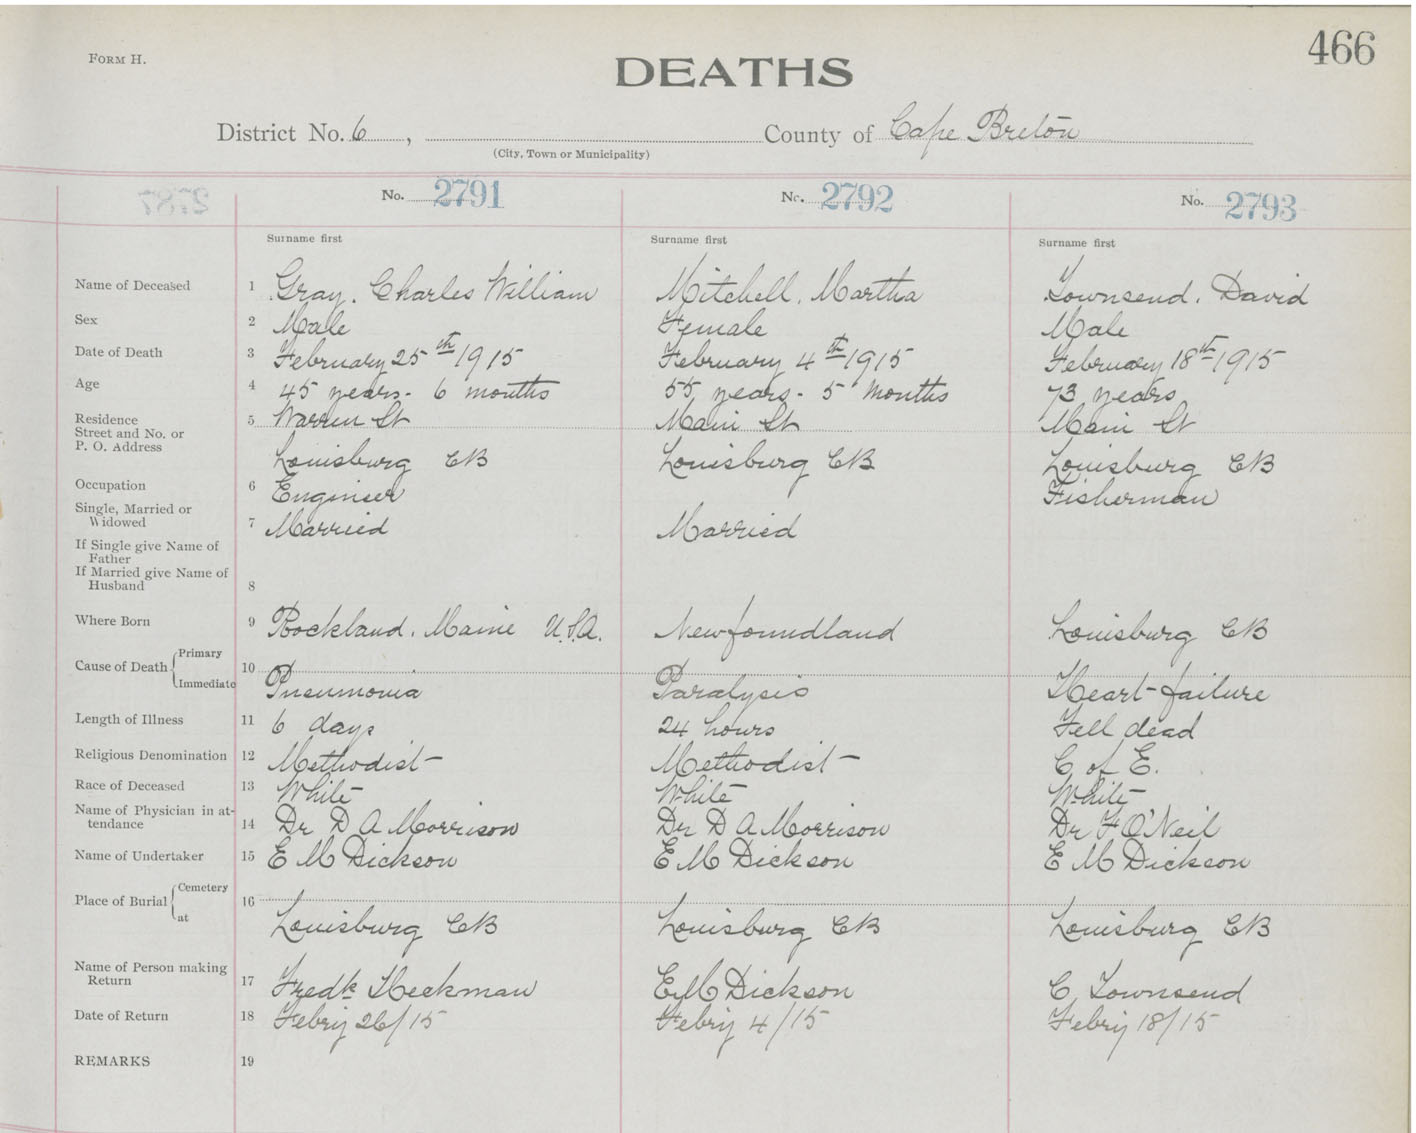 466
FORM H.
DEATHS
District No. 6, County of Cape Breton
(City, Town or Municipality)
No. 2791 No. 2792 No. 2793
2787
Surname first Surname first Surname first
Name of Deceased 1 Gray. Charles William Mitchell. Martha Townsend. David
Sex 2 Male Female Male
Date of Death 3 February 25th 1915 February 4th 1915 February 18th 1915
Age 4 45 years. 6 months 55 years. 5 months 73 years
Residence
Street and No. or 5 Warren St Main St Main St
P. O. Address Louisburg CB Louisburg CB Louisburg CB
Occupation 6 Engineer Fisherman
Single, Married or
Widowed 7 Married Married
If Single give Name of
Father
If Married give Name of
Husband 8
Where Born 9 Rockland. Maine U.S.A. Newfoundland Louisburg CB
Primary
Cause of Death 10
Immediate Pneumonia Paralysis Heart-failure
Length of Illness 11 6 days 24 hours Fell dead
Religious Denomination 12 Methodist Methodist C of E.
Race of Deceased 13 White White White
Name of Physician in at-
tendance 14 Dr D A Morrison Dr D A Morrison Dr F O'Neil
Name of Undertaker 15 E M Dickson E M Dickson E M Dickson
Cemetery
Place of Burial 16
at Louisburg CB Louisburg CB Louisburg CB
Name of Person making
Return 17 Fredk Heckman E M Dickson C Townsend
Date of Return 18 Febry 26/15 Febry 4/15 Febry 18/15
REMARKS 19